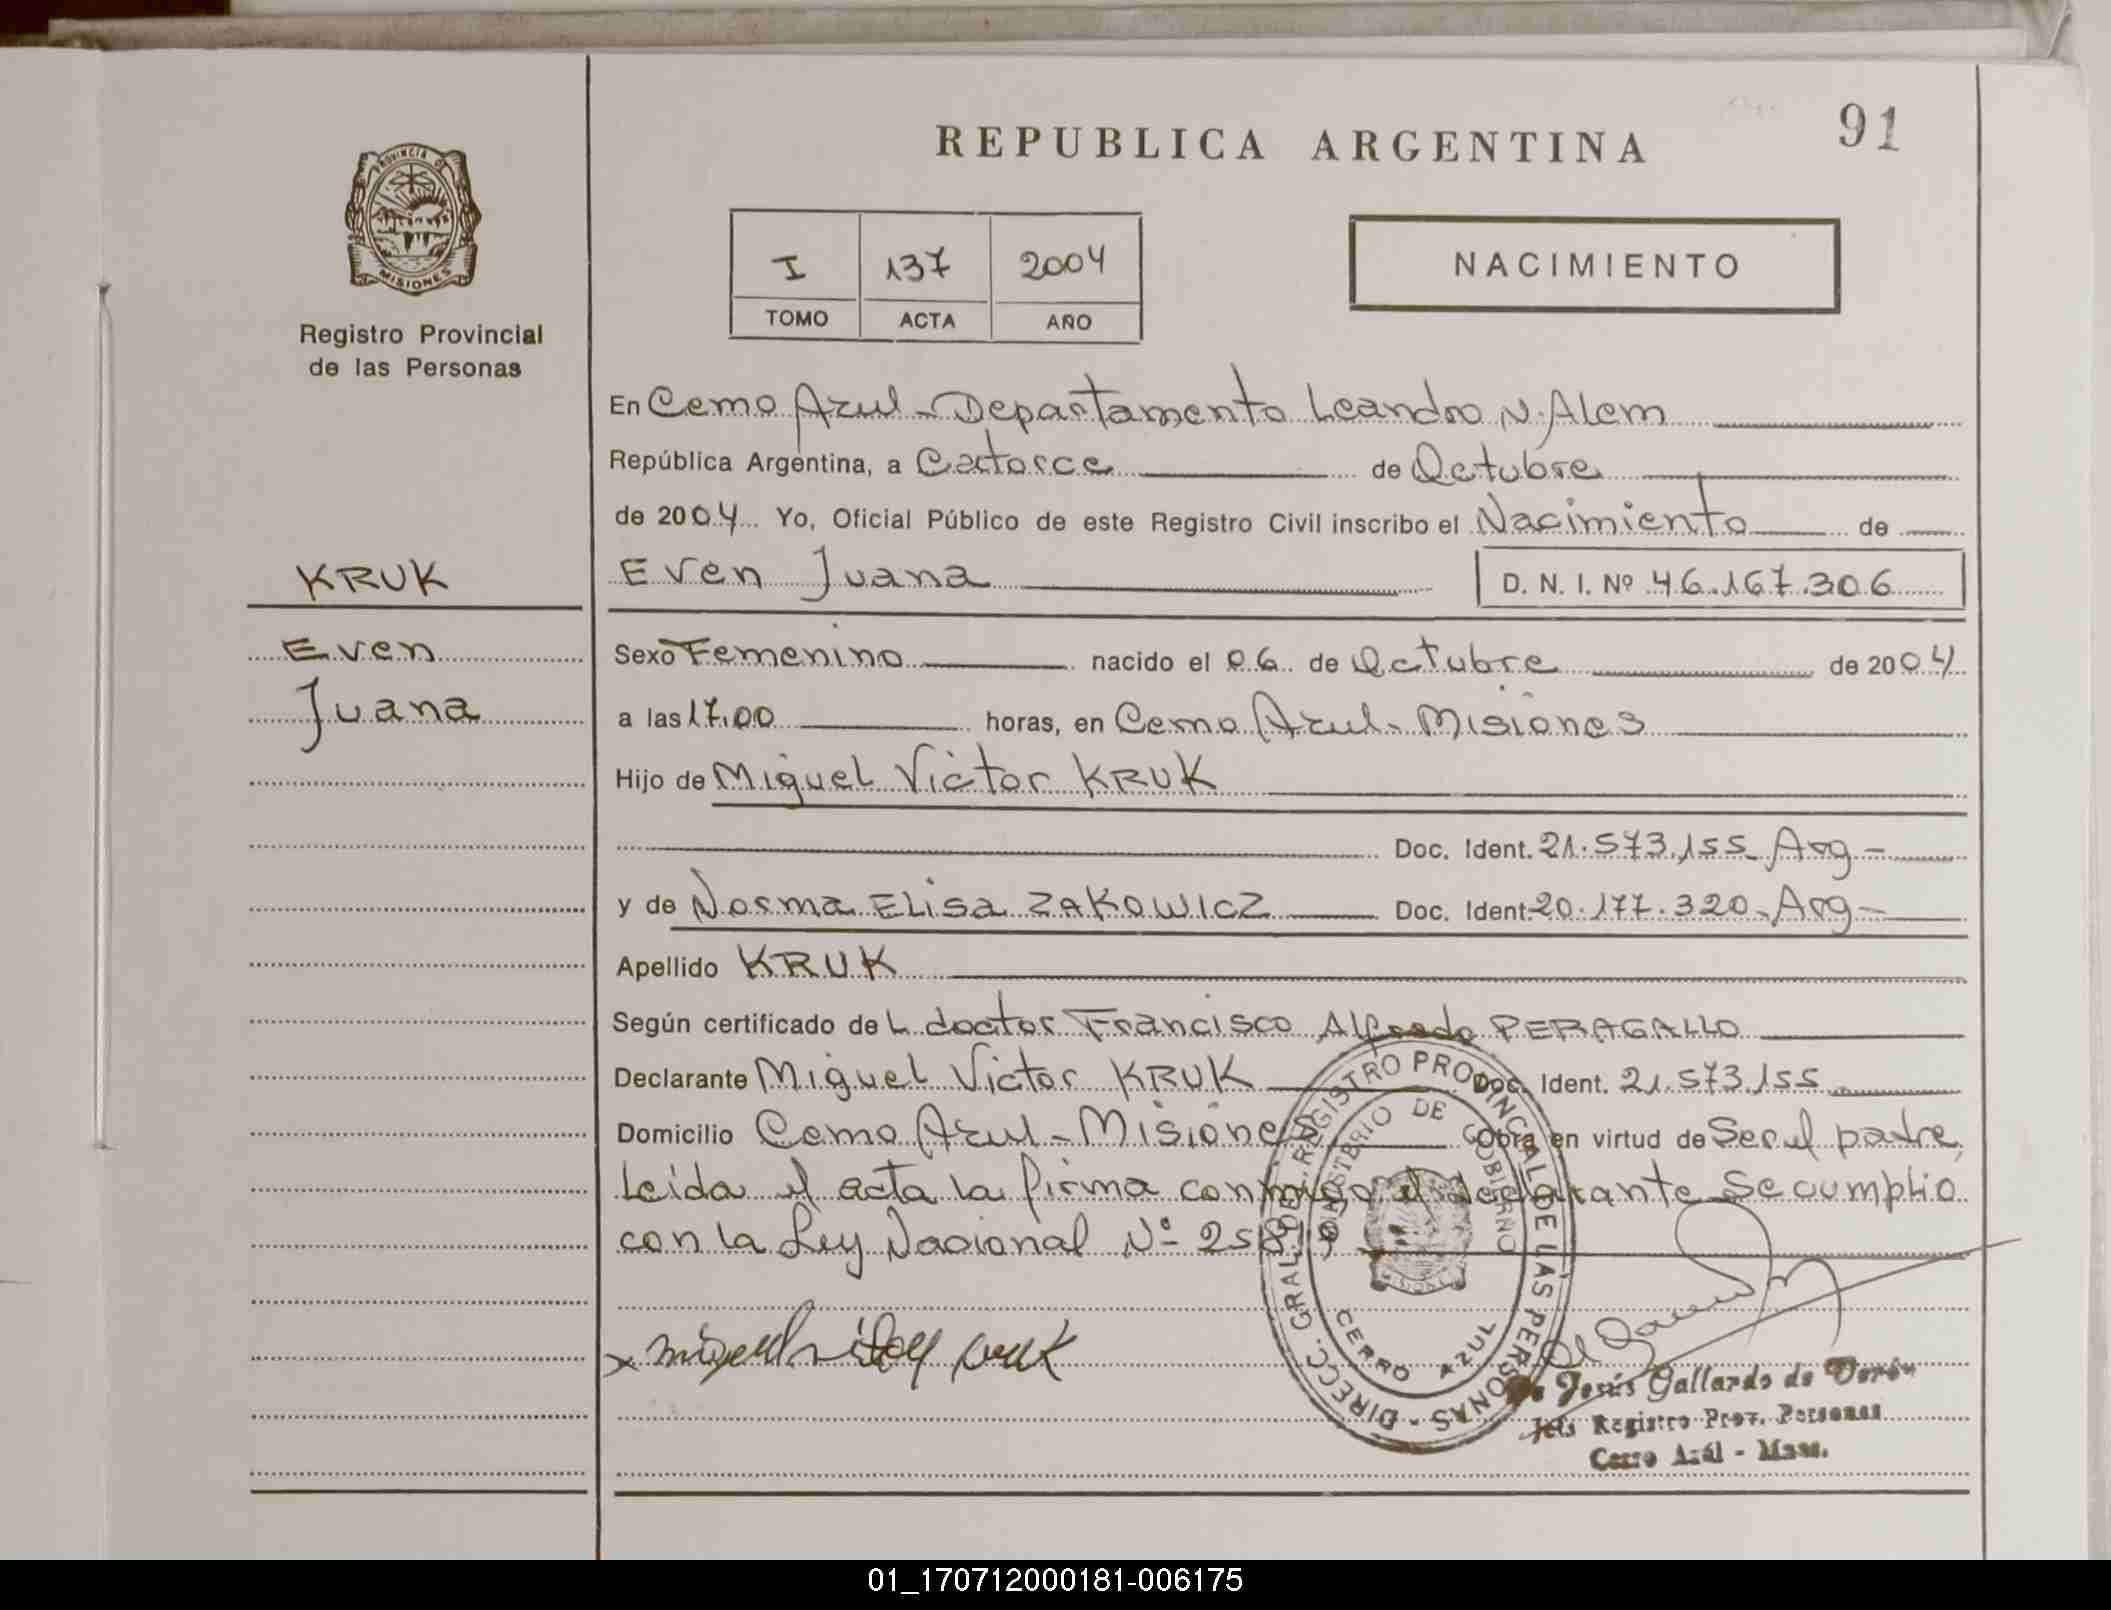 91
REPUBLICA ARGENTINA
PROVINCIA DE
MISIONES
Registro Provincial
de las Personas
I 137 2004
TOMO ACTA AÑO
NACIMIENTO
En Cerro Azul - Departamento Leandro N. Alem
República Argentina, a Catorce de Octubre
de 2004 Yo, Oficial Público de este Registro Civil inscribo el Nacimiento de
KRUK
Even Juana D. N. I. Nº 46.167.306
Even
Juana
Sexo Femenino nacido el 06 de Octubre de 2004
a las 17.00 horas, en Cerro Azul - Misiones
Hijo de Miguel Victor KRUK
Doc. Ident. 21.573.155 Arg -
y de Norma ELisa ZAKOWICZ Doc. Ident. 20.177.320 - Arg -
Apellido KRUK
Según certificado deL doctor Francisco Alfredo PERAGALLO
Declarante Miguel Victor KRUK Doc. Ident. 21.573.155
Domicilio Cerro Azul - Misiones Obra en virtud de Ser el padre,
Leida el acta la firma conmigo el declarante Se cumplio
con la Ley Nacional Nº
DIRECC. GRAL. DEL REGISTRO PROVINCIAL DE LAS PERSONAS -
MINISTERIO DE GOBIERNO
CERRO AZUL
x miguel victor kruk
Jesús Gallardo de
Jefe Registro Prov. Personas
Cerro Azúl -
01_170712000181-006175